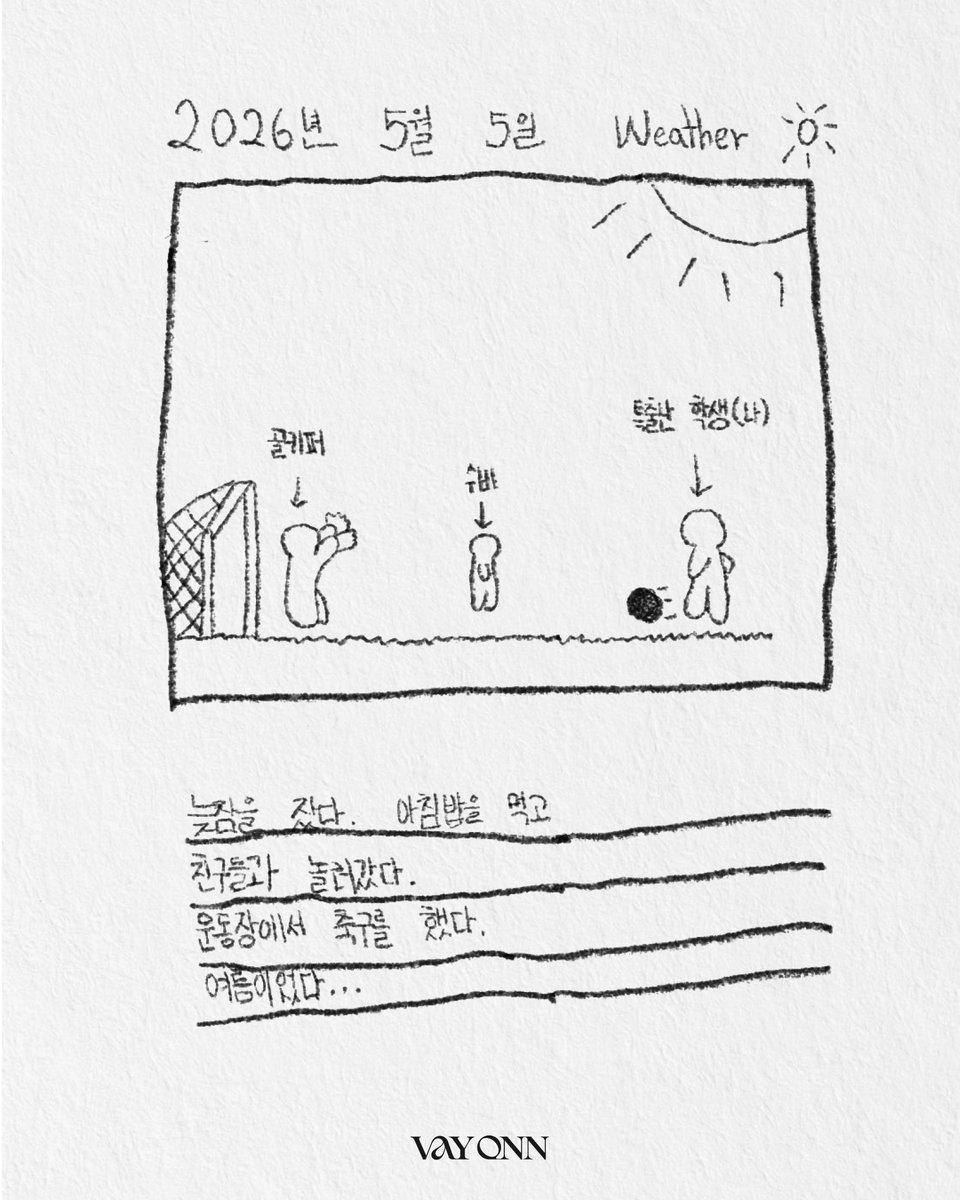 2026년 5월 5일 Weather
특출난 학생(나)
골키퍼
수비
늦잠을 잤다. 아침밥을 먹고
친구들과 놀러갔다.
운동장에서 축구를 했다.
여름이었다...
VAYONN